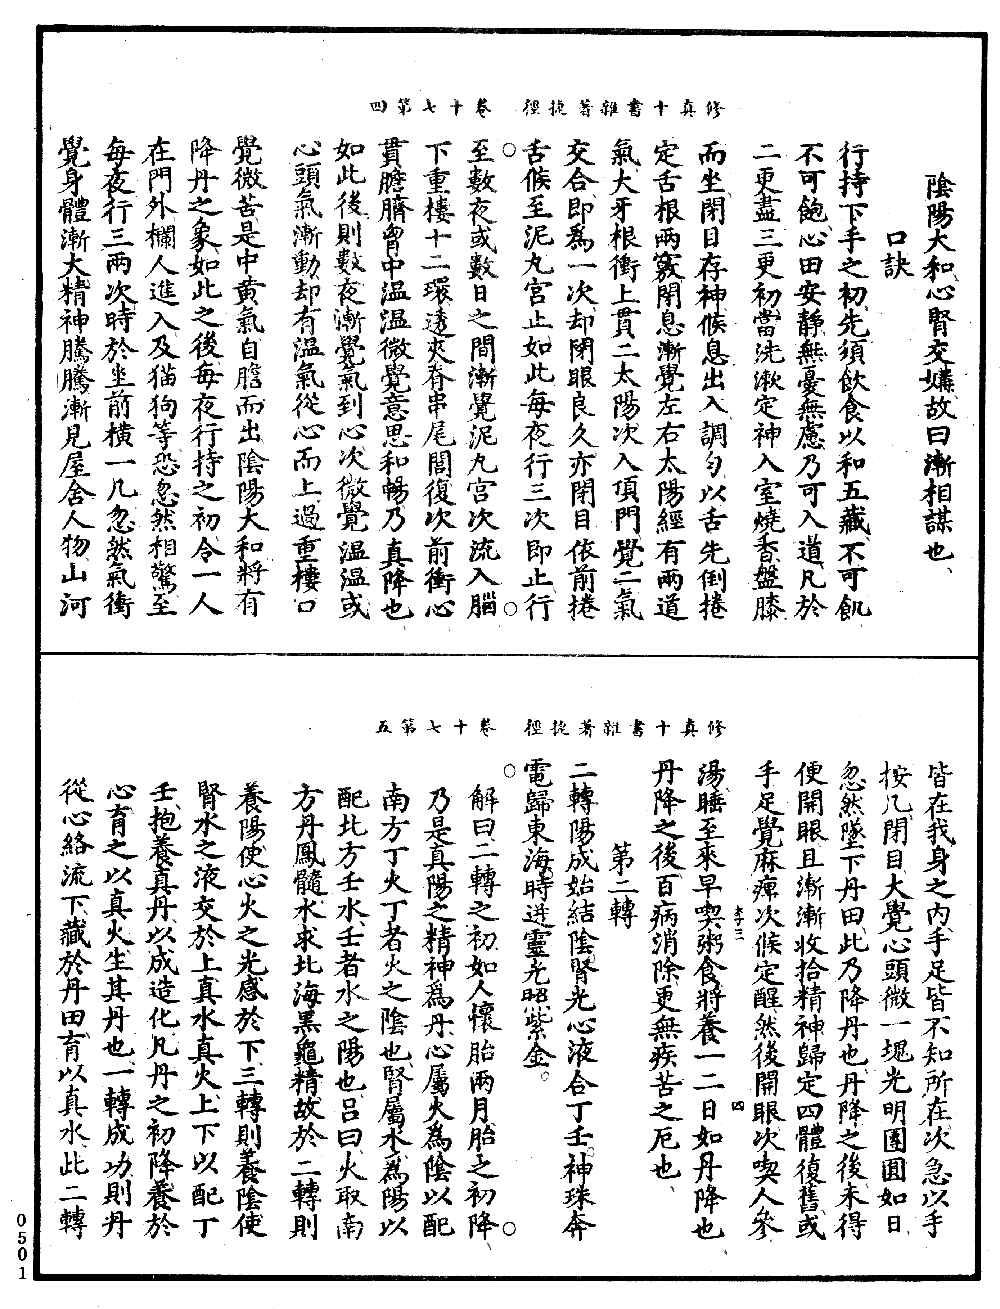 修真十書雜著捷徑　卷十七第四
陰陽大和心腎交媾故曰漸相謀也
口訣
行持下手之初先須飲食以和五藏不可飢
不可飽心田安靜無憂無慮乃可入道凡於
二更盡三更初當洗漱定神入室燒香盤膝
而坐閉目存神候息出入調勻以舌先倒捲
定舌根兩竅閉息漸覺左右太陽經有兩道
氣大牙根衝上貫二太陽次入頂門覺二氣
交合即為一次却閉眼良久亦閉目依前捲
舌候至泥丸宮止如此每夜行三次即止行
至數夜或數日之間漸覺泥丸宮次流入腦
下重樓十二環遶夾脊串尾閭復次前衝心
貫膽臍胷中温温微覺意思和暢乃真降也
如此後則數夜漸覺氣到心次微覺温温或
心頭氣漸動却有温氣從心而上過重樓口
覺微苦是中黄氣自膽而出陰陽大和將有
降丹之象如此之後每夜行持之初令一人
在門外欄人進入及猫狗等恐忽然相驚至
每夜行三兩次時於坐前横一几忽然氣衝
覺身體漸大精神騰騰漸見屋舍人物山河
修真十書雜著捷徑　卷十七第五
皆在我身之内手足皆不知所在次急以手
按几閉目大覺心頭微一塊光明團圓如日
忽然墜下丹田此乃降丹也丹降之後未得
便開眼且漸漸收拾精神歸定四體復舊或
手足覺麻痺次候定醒然後開眼次喫人參
湯睡至來早喫粥食將養一二日如丹降也
丹降之後百病消除更無疾苦之厄也
第二轉
二轉陽成始結陰腎光心液合丁壬神珠奔
電歸東海時迸靈光照紫金
解曰二轉之初如人懷胎兩月胎之初降
乃是真陽之精神為丹心屬火為陰以配
南方丁火丁者火之陰也腎屬水為陽以
配北方壬水壬者水之陽也吕曰火取南
方丹鳳髓水求北海黑龜精故於二轉則
養陽使心火之光感於下三轉則養陰使
腎水之液交於上真水真火上下以配丁
壬抱養真丹以成造化凡丹之初降養於
心育之以真火生其丹也一轉成功則丹
從心絡流下藏於丹田育以真水此二轉
四
0501